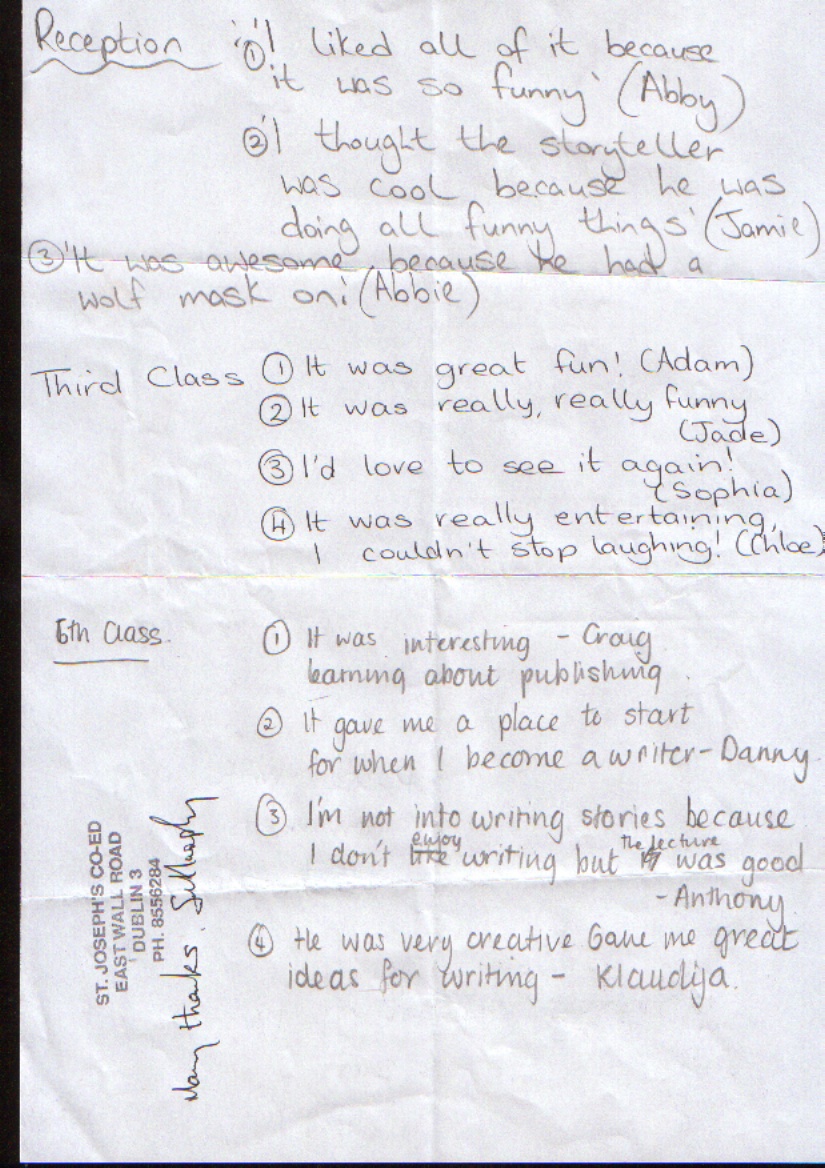 Reception
① 'I liked all of it because
it was so funny' (Abby)
② 'I thought the storyteller
was cool because he was
doing all funny things' (Jamie)
③ 'It was awesome because he had a
wolf mask on! (Abbie)
Third Class
① It was great fun! (Adam)
② It was really, really funny
(Jade)
③ I'd love to see it again!
(Sophia)
④ It was really entertaining,
I couldn't stop laughing! (Chloe)
6th Class.
① It was interesting - Craig
learning about publishing.
② It gave me a place to start
for when I become a writer - Danny
③ I'm not into writing stories because
I don't enjoy writing but the lecture was good
- Anthony
④ He was very creative Gave me great
ideas for writing - Klaudija.
ST. JOSEPH'S CO-ED
EAST WALL ROAD
DUBLIN 3
PH. 8556284
Many thanks.